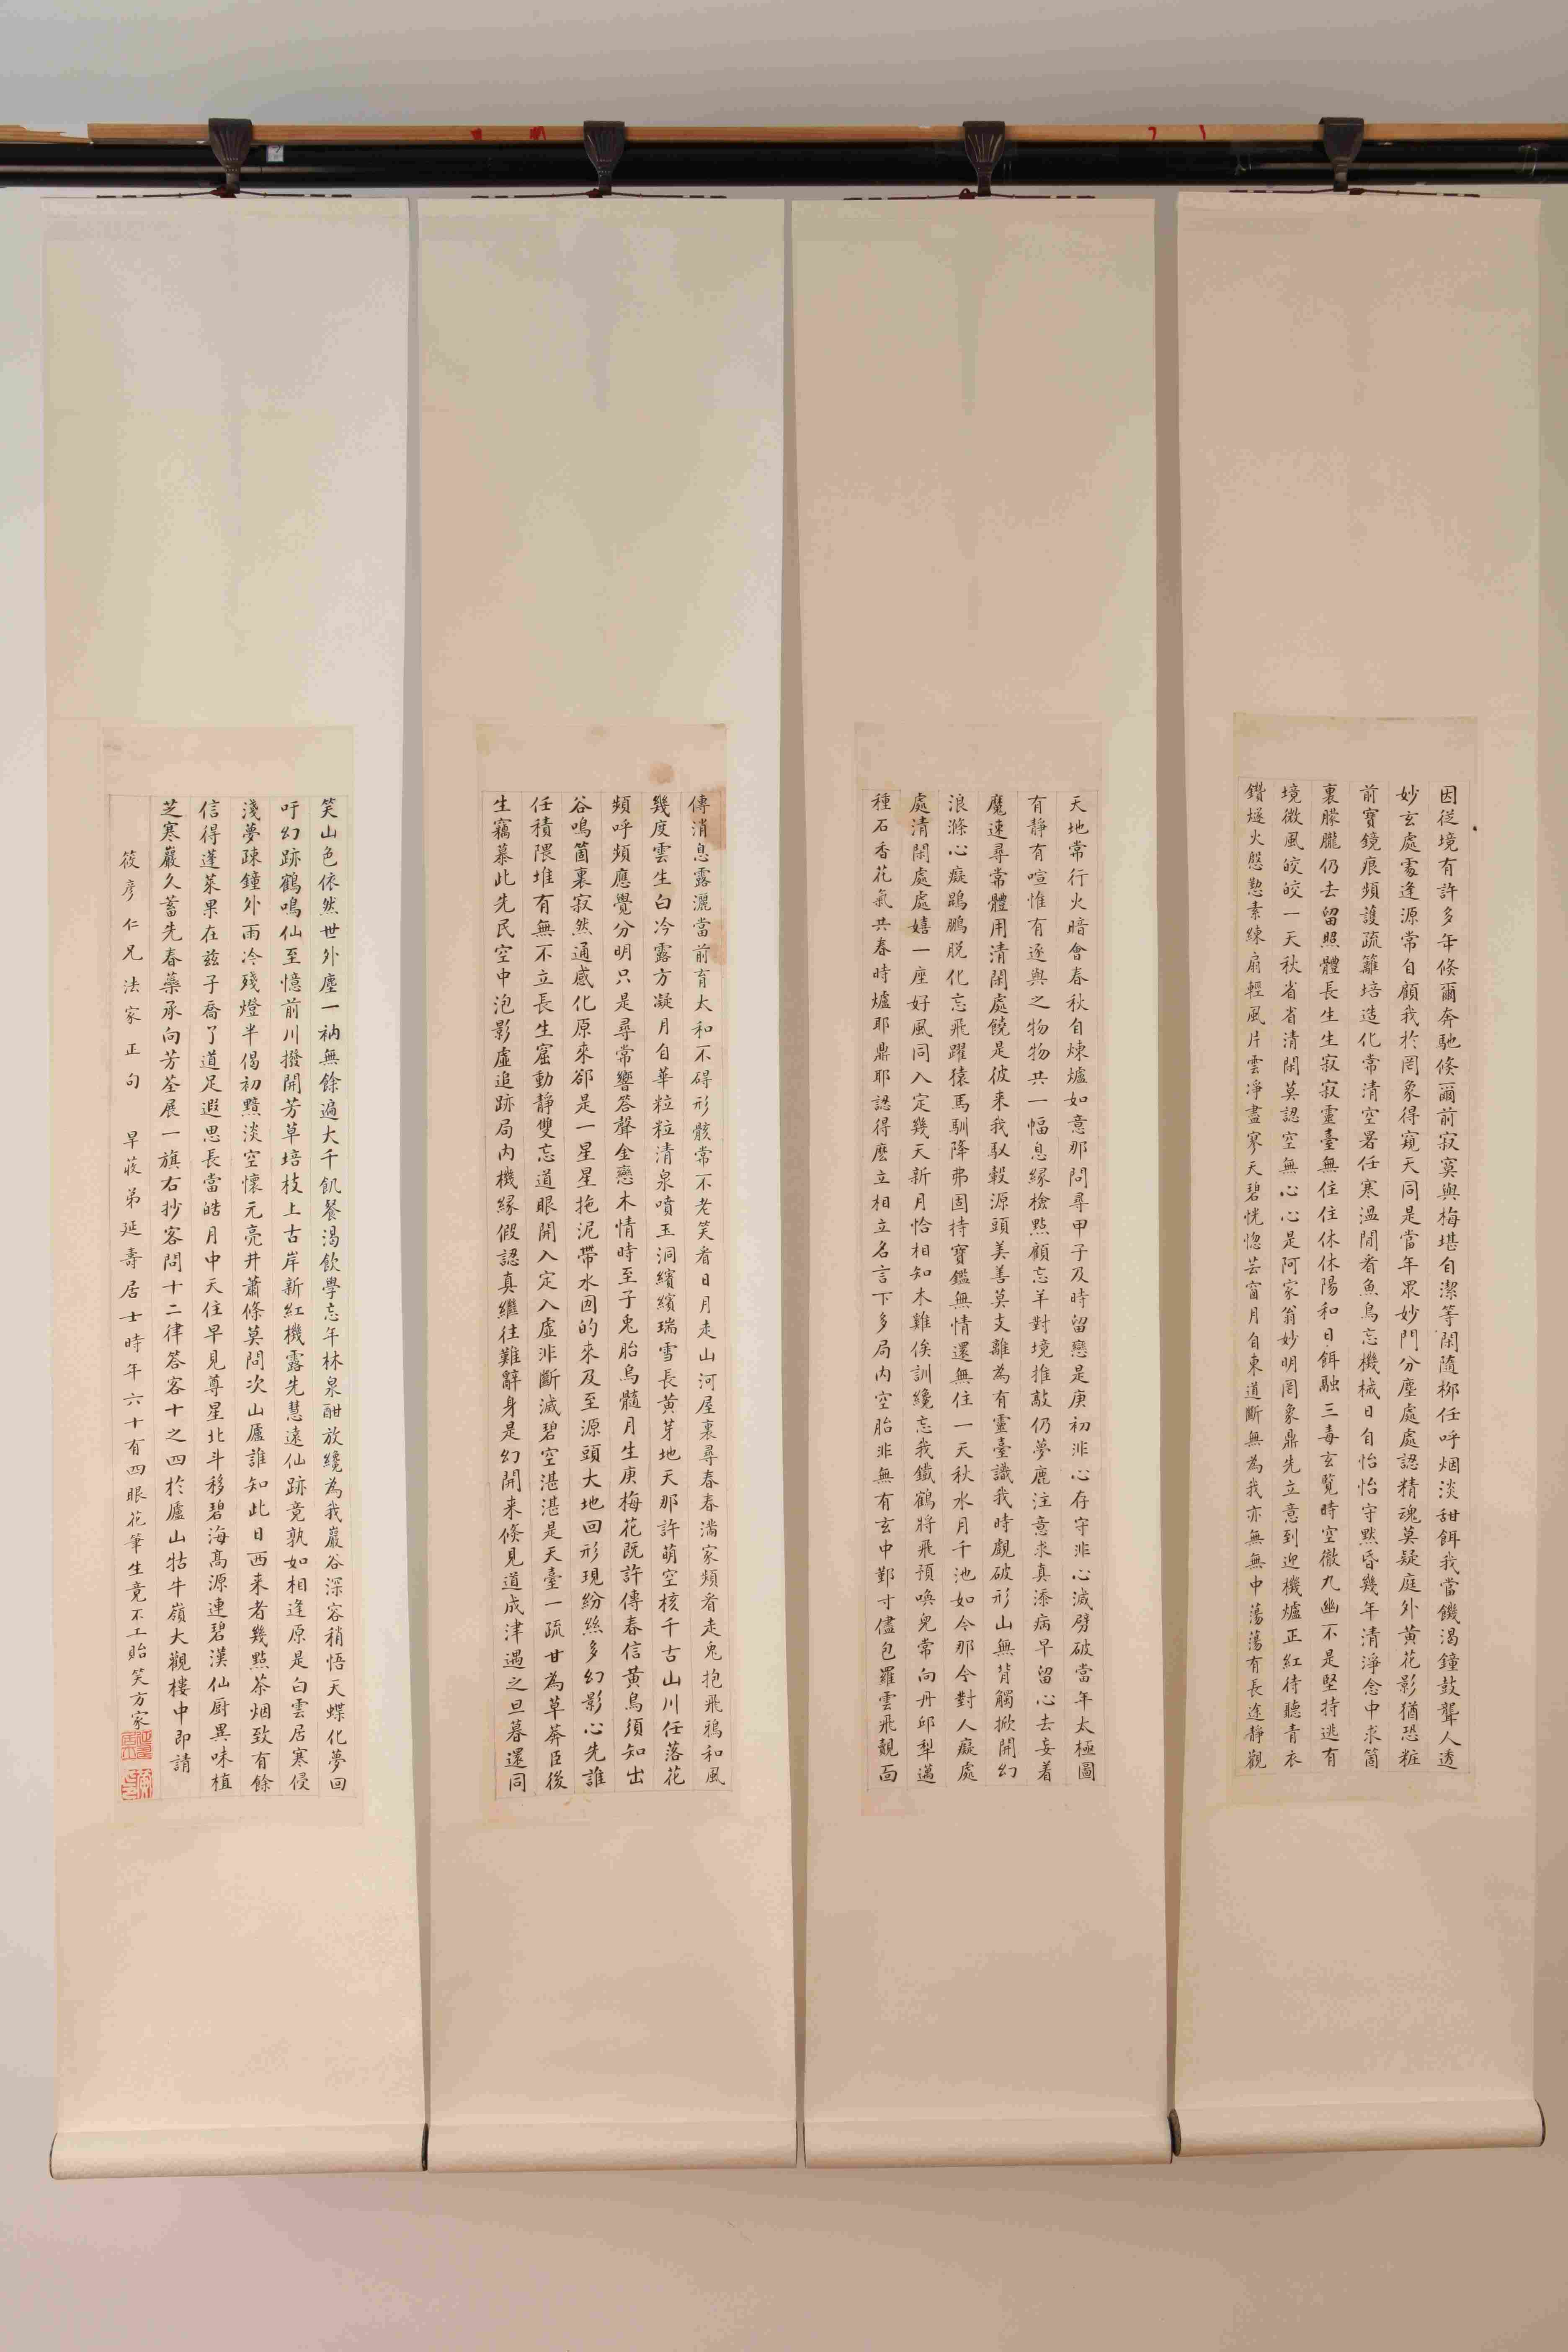 因從境有許多年倏爾奔馳倏爾前寂寞與梅堪自潔等閑隨柳任呼烟淡甜餌我當饑渴鐘鼓聾人透
妙玄處處逢源常自顧我於罔象得窺天同是當年眾妙門分塵處處認精魂莫疑庭外黃花影猶恐粧
前寶鏡痕頻護疏籬培造化常清空署任寒溫閒看魚鳥忘機械日自怡怡守黙昏幾年清淨念中求箇
裏朦朧仍去留照體長生生寂寂靈臺無住住休休陽和日餌融三毒玄覧時空徹九幽不是堅持逃有
境微風皎皎一天秋省省清閑莫認空無心心是阿家翁妙明罔象鼎先立意到迎機爐正紅待聽青衣
鑽燧火慇懃素練扇輕風片雲淨盡寥天碧恍惚芸窗月自東道斷無為我亦無無中蕩蕩有長途靜觀
天地常行火暗會春秋自煉爐如意那問尋甲子及時留戀是庚初非心存守非心滅劈破當年太極圖
有靜有喧惟有逐與之物物共一幅息緣檢點顧忘羊對境推敲仍夢鹿注意求真添病早留心去妄着
魔速尋常體用清閑處饒是彼来我馭轂源頭美善莫支離為有靈臺識我時覷破形山無背觸掀開幻
浪滌心癡鵾鵬脱化忘飛躍猿馬馴降弗固持寶鑑無情還無住一天秋水月千池如今那今對人癡處
處清閑處處嬉一座好風同入定幾天新月恰相知木雞俟訓纔忘我鐵鶴將飛預喚兒常向丹邱犁邁
種石香花氣共春時爐耶鼎耶認得麼立相立名言下多局內空胎非無有玄中鄞寸儘包羅雲飛覿面
傳消息露灑當前育太和不碍形骸常不老笑看日月走山河屋裏尋春春滿家頻看走兎抱飛鴉和風
幾度雲生白冷露方凝月自華粒粒清泉噴玉洞繽繽瑞雪長黃芽地天那許萌空核千古山川任落花
頻呼頻應覺分明只是尋常響答聲金戀木情時至子兎胎烏髓月生庚梅花既許傳春信黃鳥須知出
谷鳴箇裏寂然通感化原來卻是一星星拖泥帶水因的來及至源頭大地回形現紛絲多幻影心先誰
任積隈堆有無不立長生窟動靜雙忘道眼開入定入虛非斷滅碧空湛湛是天臺一疏甘為草莽臣後
生竊慕此先民空中泡影虛追跡局內機緣假認真繼往難辭身是幻開来倏見道成津遇之旦暮還同
笑山色依然世外塵一衲無餘遍大千飢餐渴飲學忘年林泉酣放纔為我巖谷深容稍悟天蝶化夢回
吁幻跡鶴鳴仙至憶前川撥開芳草培枝上古岸新紅機露先慧遠仙跡竟孰如相逢原是白雲居寒侵
淺夢疎鐘外雨冷殘燈半偈初黯淡空懷元亮井蕭條莫問次山廬誰知此日西来者幾點茶烟致有餘
信得蓬萊果在茲子喬了道足遐思長當皓月中天住早見尊星北斗移碧海髙源連碧漢仙厨異味植
芝寒巖久蓄先春藥承向芳荃展一旗右抄客問十二律答客十之四於廬山牯牛嶺大觀樓中即請
筱彦仁兄法家正句 早蓛弟延壽居士時年六十有四眼花筆生竟不工貽笑方家